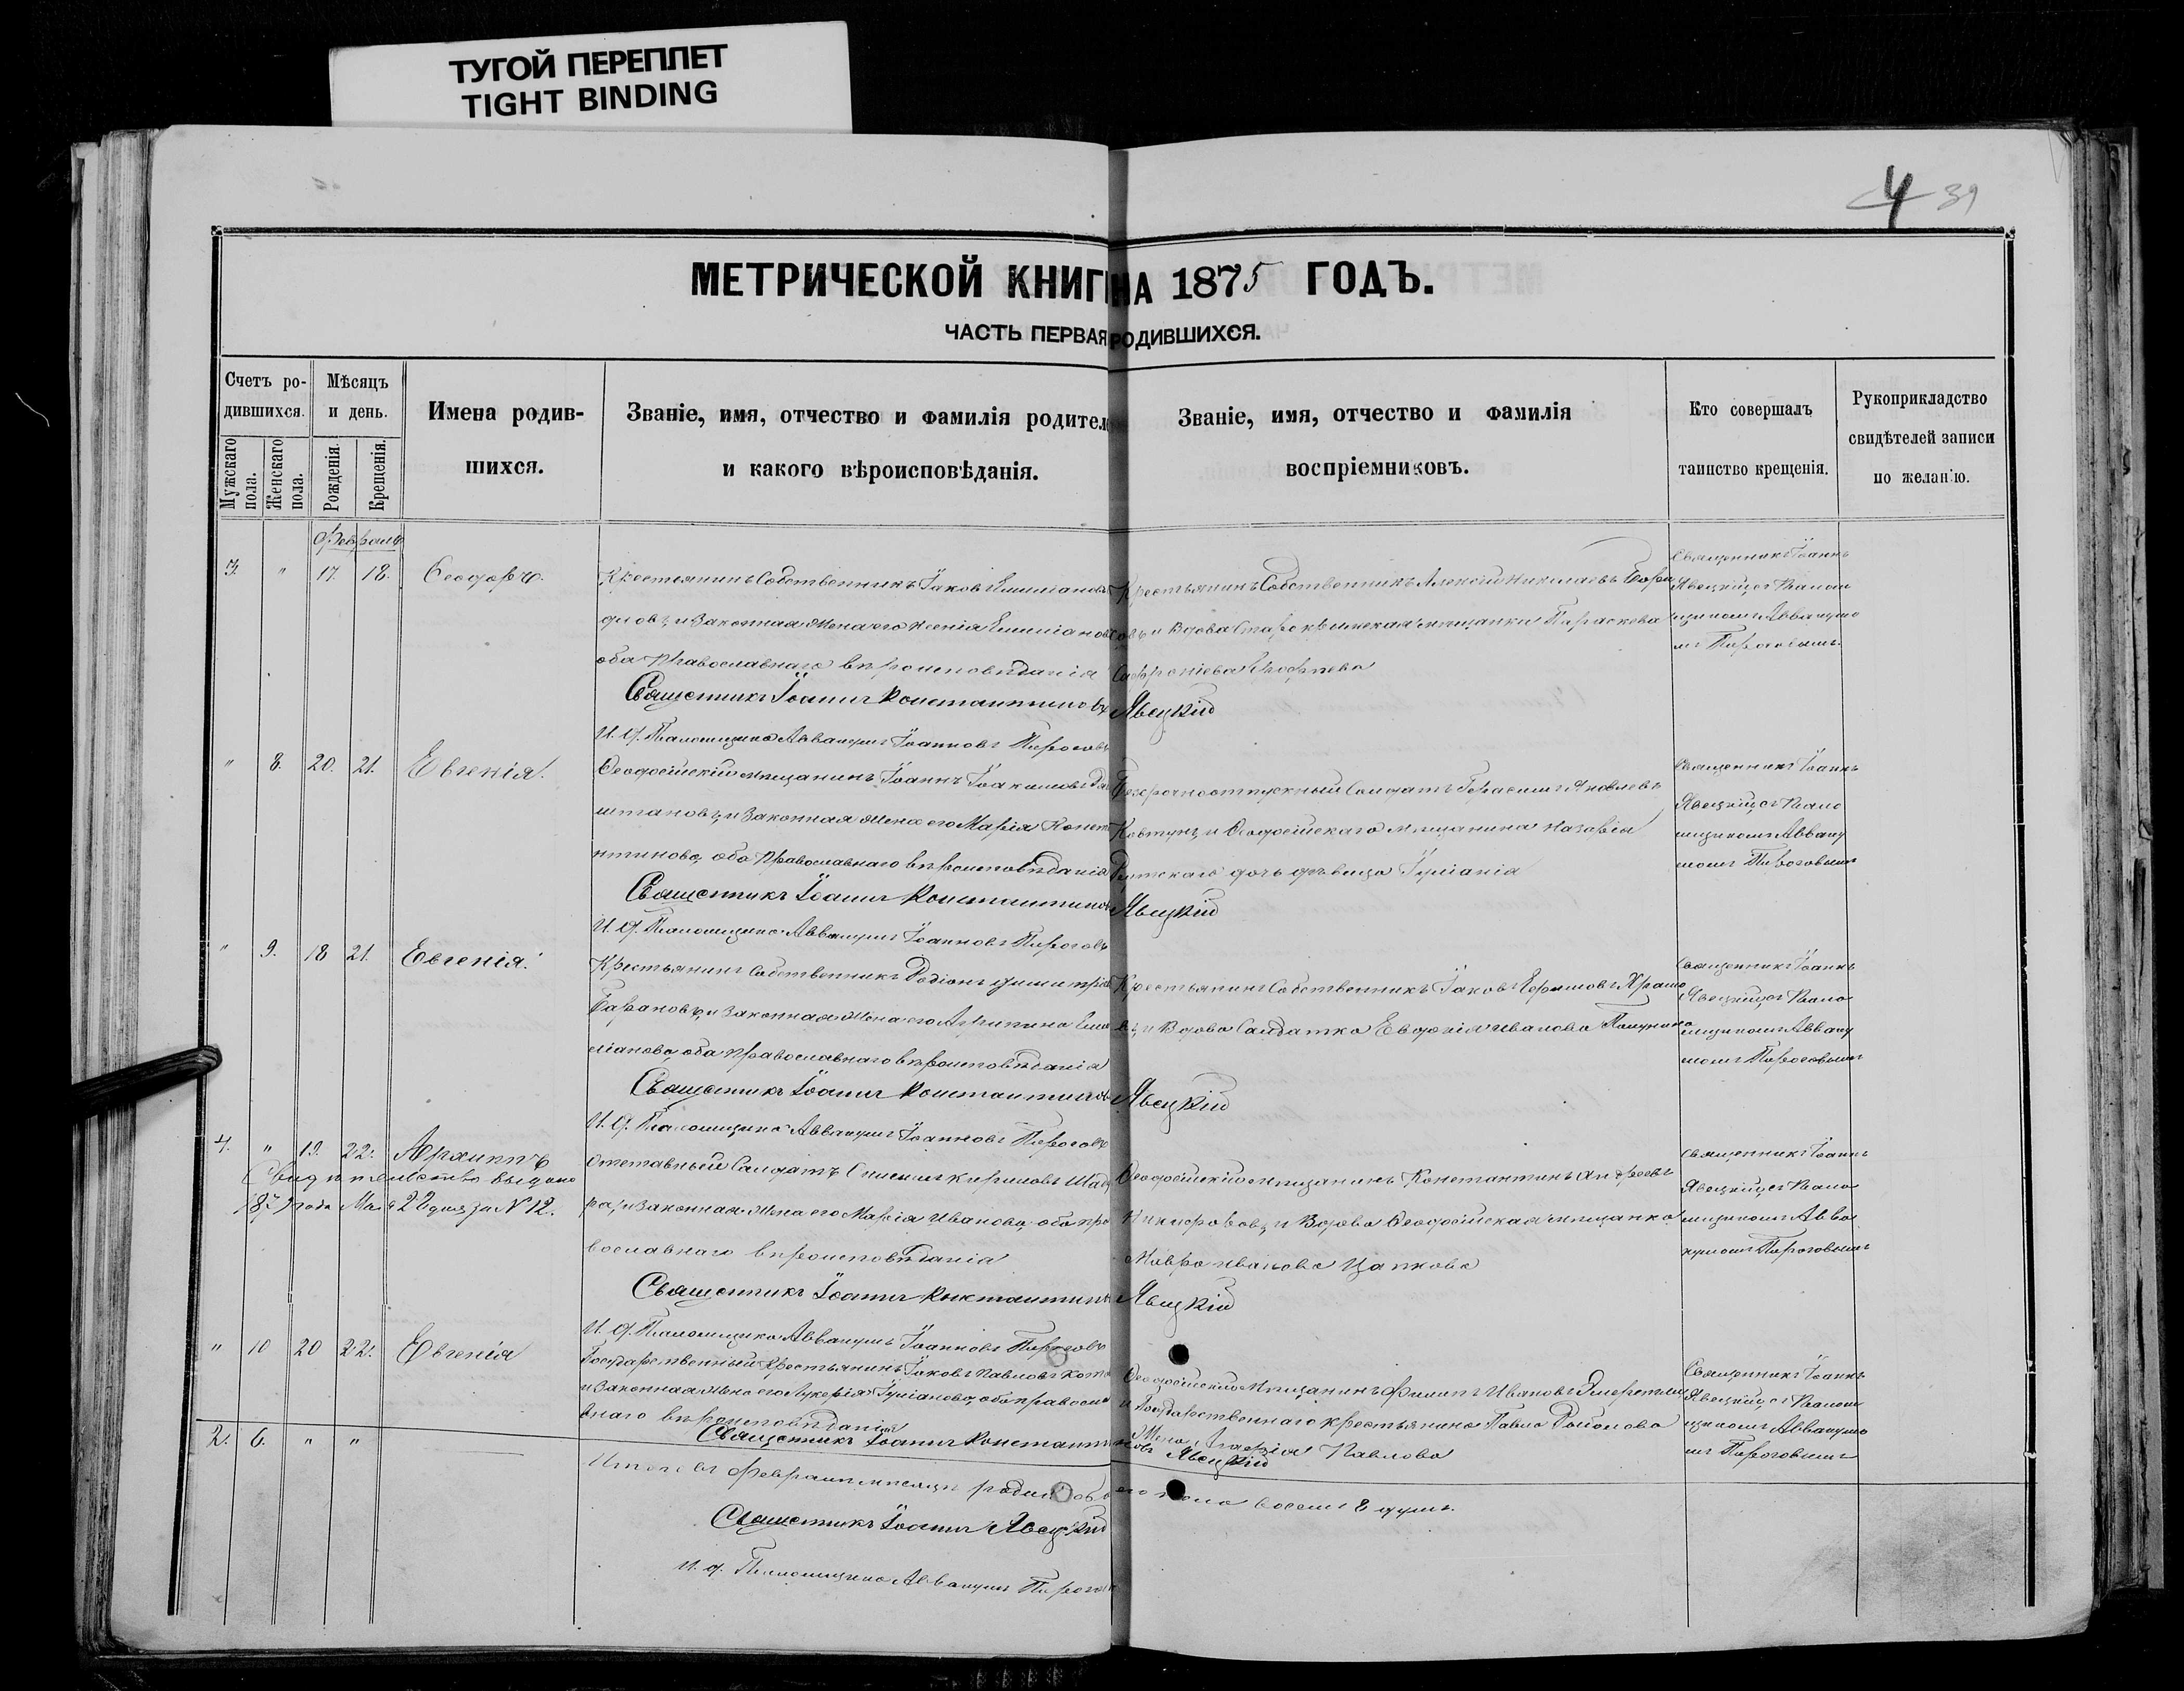 ТУГОЙ ПЕРЕПЛЕТ
TIGHT BINDING
4 39
МЕТРИЧЕСКОЙ КНИГ НА 1875 ГОДЪ.
ЧАСТЬ ПЕРВАЯ РОДИВШИХСЯ.
Счетъ ро-
дившихся.
Мужскаго пола.
Женскаго пола.
Мѣсяцъ
и день.
Рожденія.
Крещенія.
Имена родив-
шихся.
Званіе, имя, отчество и фамилія родител
и какого вѣроисповѣданія.
Званіе, имя, отчество и фамилія
воспріемниковъ.
Кто совершалъ
таинство крещенія.
Рукоприкладство
свидѣтелей записи
по желанію.
Февраль
3. " 17. 18. Ѳеодоръ.
Крестьянинъ Собственникъ Іаковъ Емиліановъ
и Законная Жена его Ксенія Емиліанов
оба Православнаго вѣроисповѣданія
Священникъ Іоаннъ Константиновъ Явецкій
И. д. Псаломщика Аввакумъ Іоанновъ Пироговъ
Крестьянинъ Собственникъ Алексій Николаевъ
и Вдова Старокрымская мѣщанка Параскева
Софроніева
Священникъ Іоаннъ
Явецкій съ Псалом
щикомъ Аввакумо
мъ Пироговымъ.
" 8. 20. 21. Евгенія.
Ѳеодосійскій мѣщанинъ Іоаннъ Іоакимовъ
и Законная Жена его Марія Конст
нтинова, оба Православнаго вѣроисповѣданія
Священникъ Іоаннъ Константиновъ Явецкій
И. д. Псаломщика Аввакумъ Іоанновъ Пироговъ
Безсрочноотпускный Солдатъ Герасимъ Яковлевъ
Ковтунъ, и Ѳеодосійскаго мѣщанина Назарія
дочь дѣвица Іуліанія
Священникъ Іоаннъ
Явецкій съ Псало
мщикомъ Авваку
момъ Пироговымъ
" 9. 18 21. Евгенія.
Крестьянинъ Собственникъ Родіонъ Димитріев
Барановъ, и Законная Жена его Агрипина Еми
ліанова, оба Православнаго вѣроисповѣданія
Священникъ Іоаннъ Константиновъ Явецкій
И. д. Псаломщика Аввакумъ Іоанновъ Пироговъ
Крестьянинъ Собственникъ Іаковъ Ефимовъ
и Вдова Солдатка Евдокія Иванова
Священникъ Іоаннъ
Явецкій съ Псало
мщикомъ Авваку
момъ Пироговымъ
4. " 19. 22. Архиппъ
Свидѣтельство выдано
года Мая 22 дня за № 12.
Отставный Солдатъ Кириловъ
и Законная Жена его Марія Иванова, оба пра
вославнаго вѣроисповѣданія
Священникъ Іоаннъ Константинов Явецкій
И. д. Псаломщика Аввакумъ Іоанновъ Пироговъ
Ѳеодосійскій мѣщанинъ Константинъ Андреевъ
Никифоровъ, и Вдова Ѳеодосійская мѣщанка
Мавра Иванова Цапкова
Священникъ Іоаннъ
Явецкій съ Псало
мщикомъ Авва
кумомъ Пироговымъ
" 10 20 22. Евгенія
Государственный Крестьянинъ Іаковъ Павловъ
и Законная Жена его Лукерія Іуліанова, оба правосла
внаго вѣроисповѣданія
Священникъ Іоаннъ Константиновъ Явецкій
Ѳеодосійскій Мѣщанинъ Филипъ Ивановъ
и Государственнаго крестьянина Павла
Жена Агафія Павлова
Священникъ Іоаннъ
Явецкій съ Псалом
щикомъ Аввакумо
мъ Пироговымъ
2. 6. " "
Итого въ Февралѣ мѣсяцѣ родил обо его пола восемь 8 душъ.
Священникъ Іоаннъ Явецкій
И. д. Псаломщика Аввакумъ Пирогов